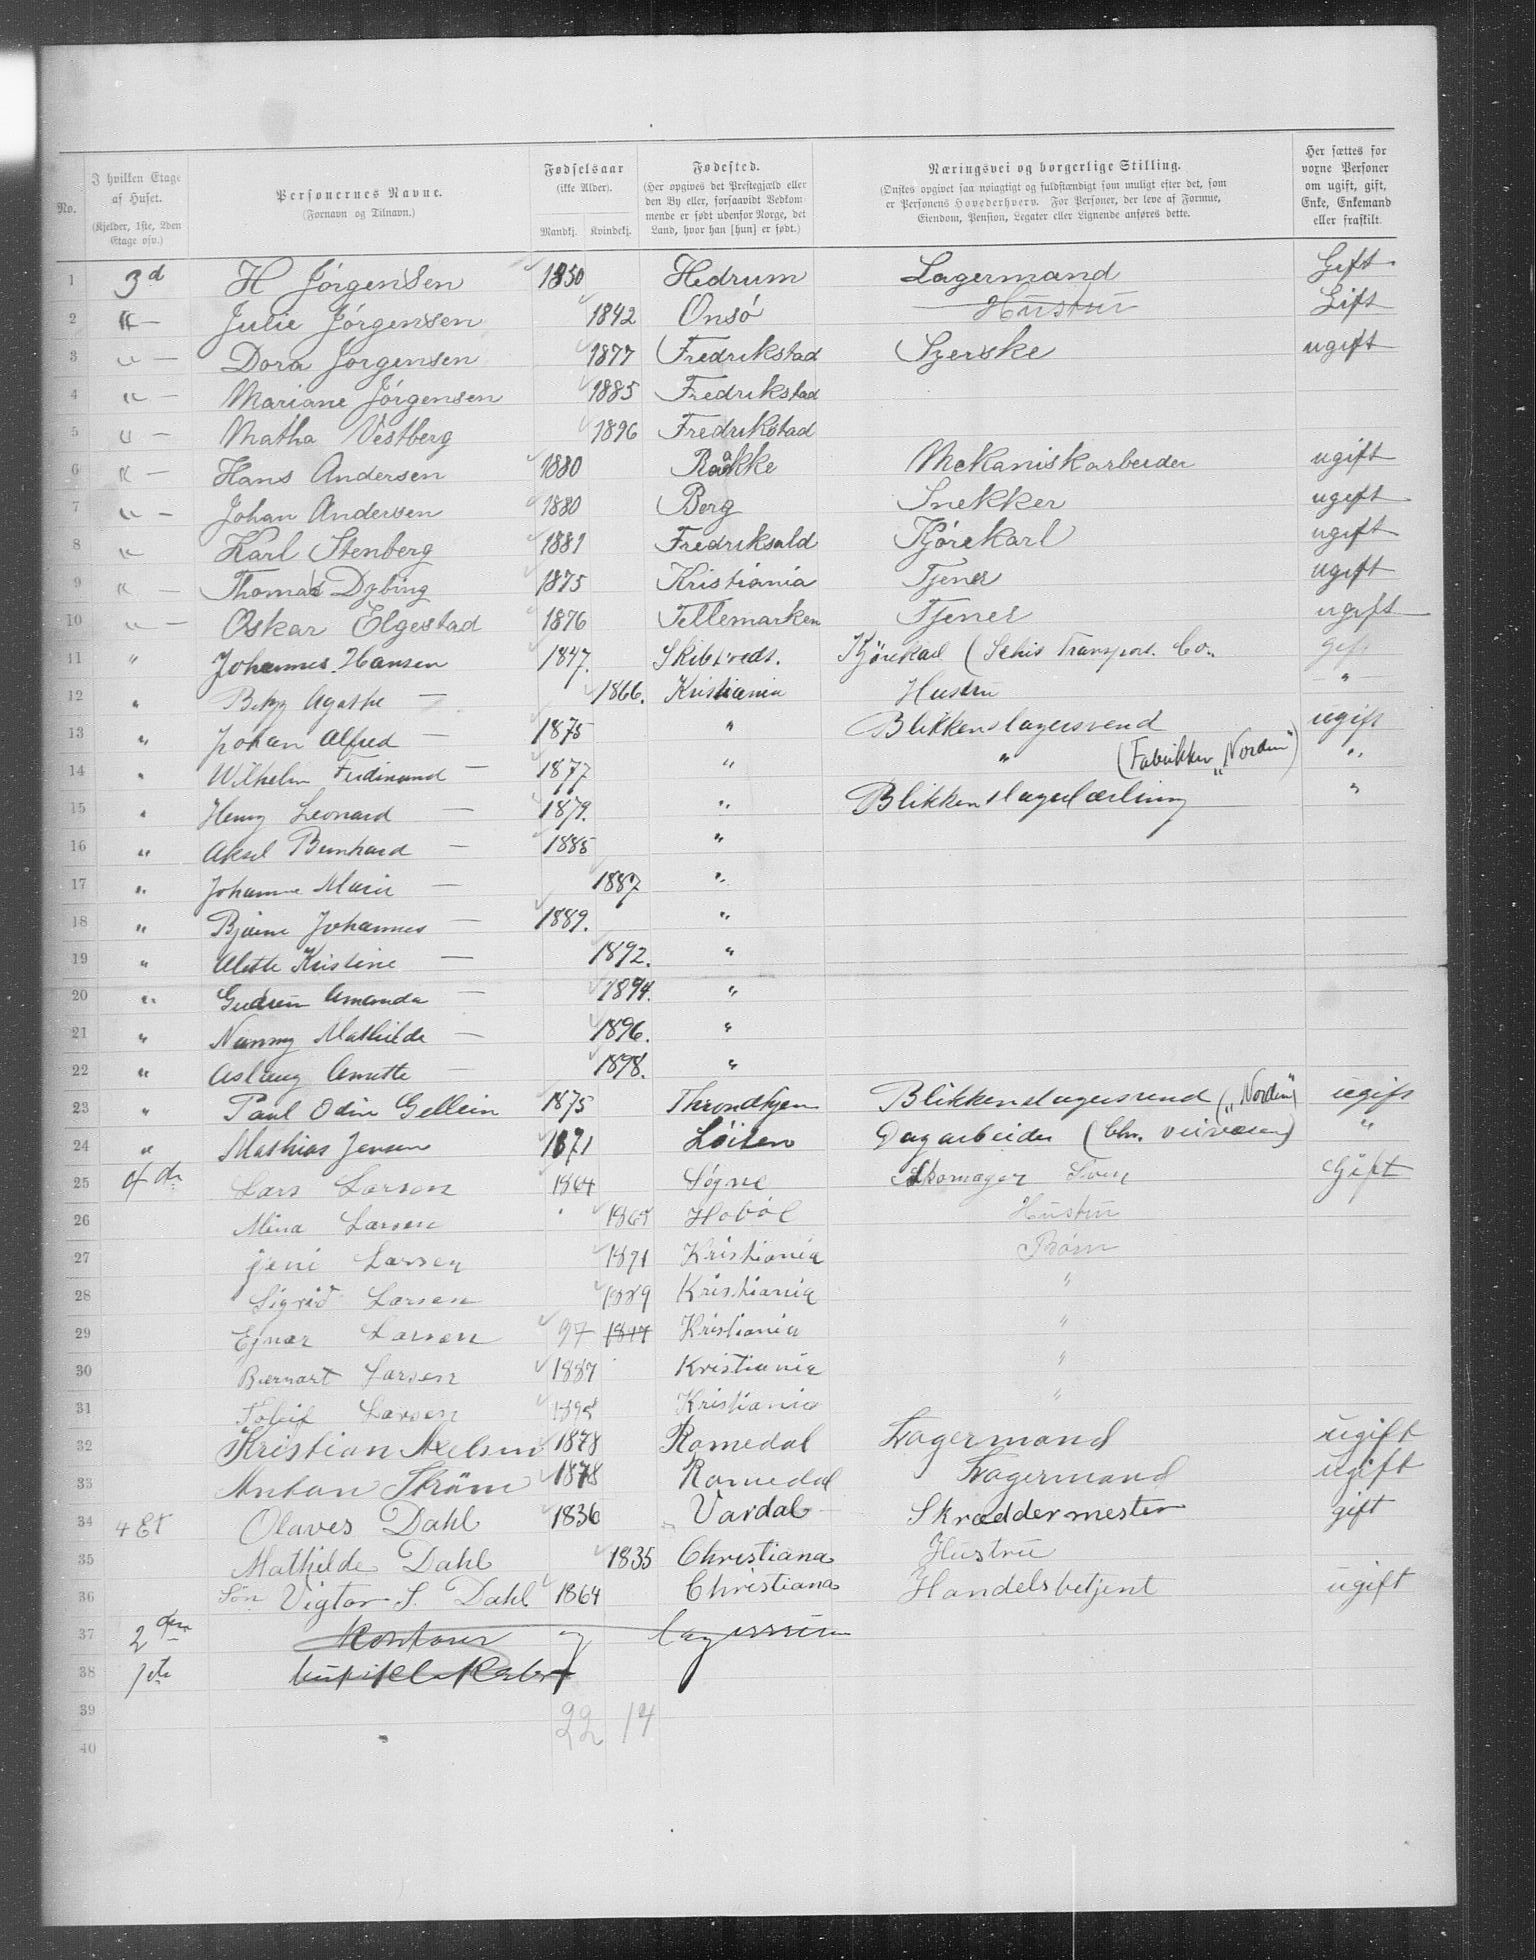 No. | I hvilken Etage af Huset. (Kjelder, 1ste, 2den Etage osv.) | Personernes Navne. (Fornavn og Tilnavn.) | Fødselsaar (ikke Alder). Mandkj. Kvindekj. | Fødested. (Her opgives det Prestegjæld eller den By eller, forsaavidt Vedkommende er født udenfor Norge, det Land, hvor han [hun] er født.) | Næringsvei og borgerlige Stilling. (Ønskes opgivet saa nøiagtigt og fuldstændigt som muligt efter det, som er Personens Hovederhverv. For Personer, der leve af Formue, Eiendom, Pension, Legater eller Lignende anføres dette. | Her sættes for voxne Personer om ugift, gift, Enke, Enkemand eller fraskilt.
1 3d H Jørgensen 1850 Hedrum Lagermand Gift
2 " — Julie Jørgensen 1842 Onsö Hustru Gift
3 " — Dora Jørgensen 1877 Fredrikstad Syerske ugift
4 " — Mariane Jørgensen 1885 Fredrikstad
5 " — Matha Vestberg 1896 Fredrikstad
6 " — Hans Andersen 1880 Rakke Mekaniskarbeider ugift
7 " — Johan Andersen 1880 Berg Snekker ugift
8 " Karl Stenberg 1881 Fredriksald Kjørekarl ugift
9 " — Thomas Dybing 1875 Kristiania Tjener ugift
10 " — Oskar Elgestad 1876 Tellemarken Tjener ugift
11 " Johannes Hansen 1847. Skibtvedt. Kjørekarl (Schis Transport. Co. gift
12 " Betzy Agathe — 1866. Kristiania Hustru "
13 " Johan Alfred — 1875 " Blikkenslagersvend ugift
14 " Wilhelm Ferdinand — 1877 " " (Fabrikken „Norden") "
15 " Henry Leonard — 1879. " Blikkenslagerlærling "
16 " Aksel Bernhard — 1885 "
17 " Johanne Marie — 1887 "
18 " Bjarne Johannes — 1889. "
19 " Alette Kristine — 1892. "
20 " Gudrun Amanda — 1894. "
21 " Nanny Mathilde — 1896. "
22 " Aslaug Anette — 1898. "
23 " Paul Odin Gellein 1875 Throndhjem Blikkenslagersvend („Norden") ugift
24 " Mathias Jensen 1871 Løiten Dagarbeider (Chr. veivæsen) "
25 4de Lars Larsen 1864 Søgne Skomager Sven Gift
26 Mina Larsen 1865 Hobøl Hustru
27 Jeni Larsen 1891 Kristiania Børn
28 Sigrid Larsen 1889 Kristiania "
29 Ejnar Larsen 97 1897 Kristiania "
30 Bernart Larsen 1887 Kristiania "
31 Larsen 1895 Kristiania "
32 Kristian Axelsen 1878 Romedal Lagermand ugift
33 Anton Strøm 1878 Romedal Lagermand ugift
34 4 Et Olaves Dahl 1836 Vardal Skræddermester gift
35 Mathilde Dahl 1835 Christiana Hustru
36 Søn Vigtor S. Dahl 1864 Christiana Handelsbetjent ugift
37 2den Kontorer og Lagerrum
38 1ste
39 22 14
40